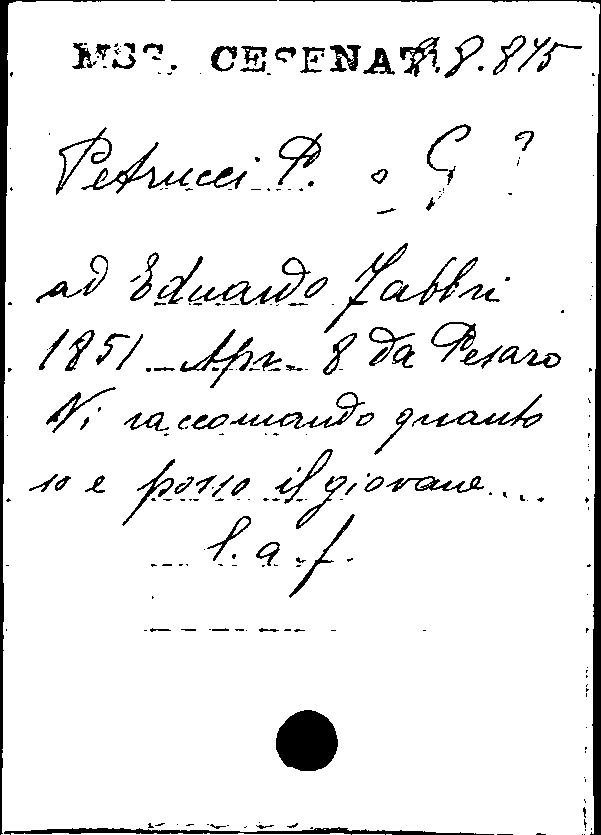 MSS. CESENATI. 8.8.815
Petrucci P. o G ?
ad Eduardo Fabbri
1851 Apr. 8 da Pesaro
Vi raccomando quanto
so e posso il giovane....
l. a. f.